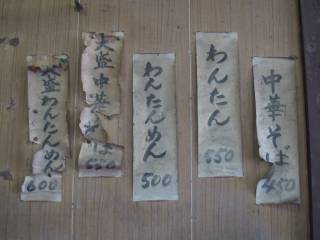 中華そば
450
わんたん
550
わんたんめん
500
大盛中華そば
550
大盛わんたんめん
600